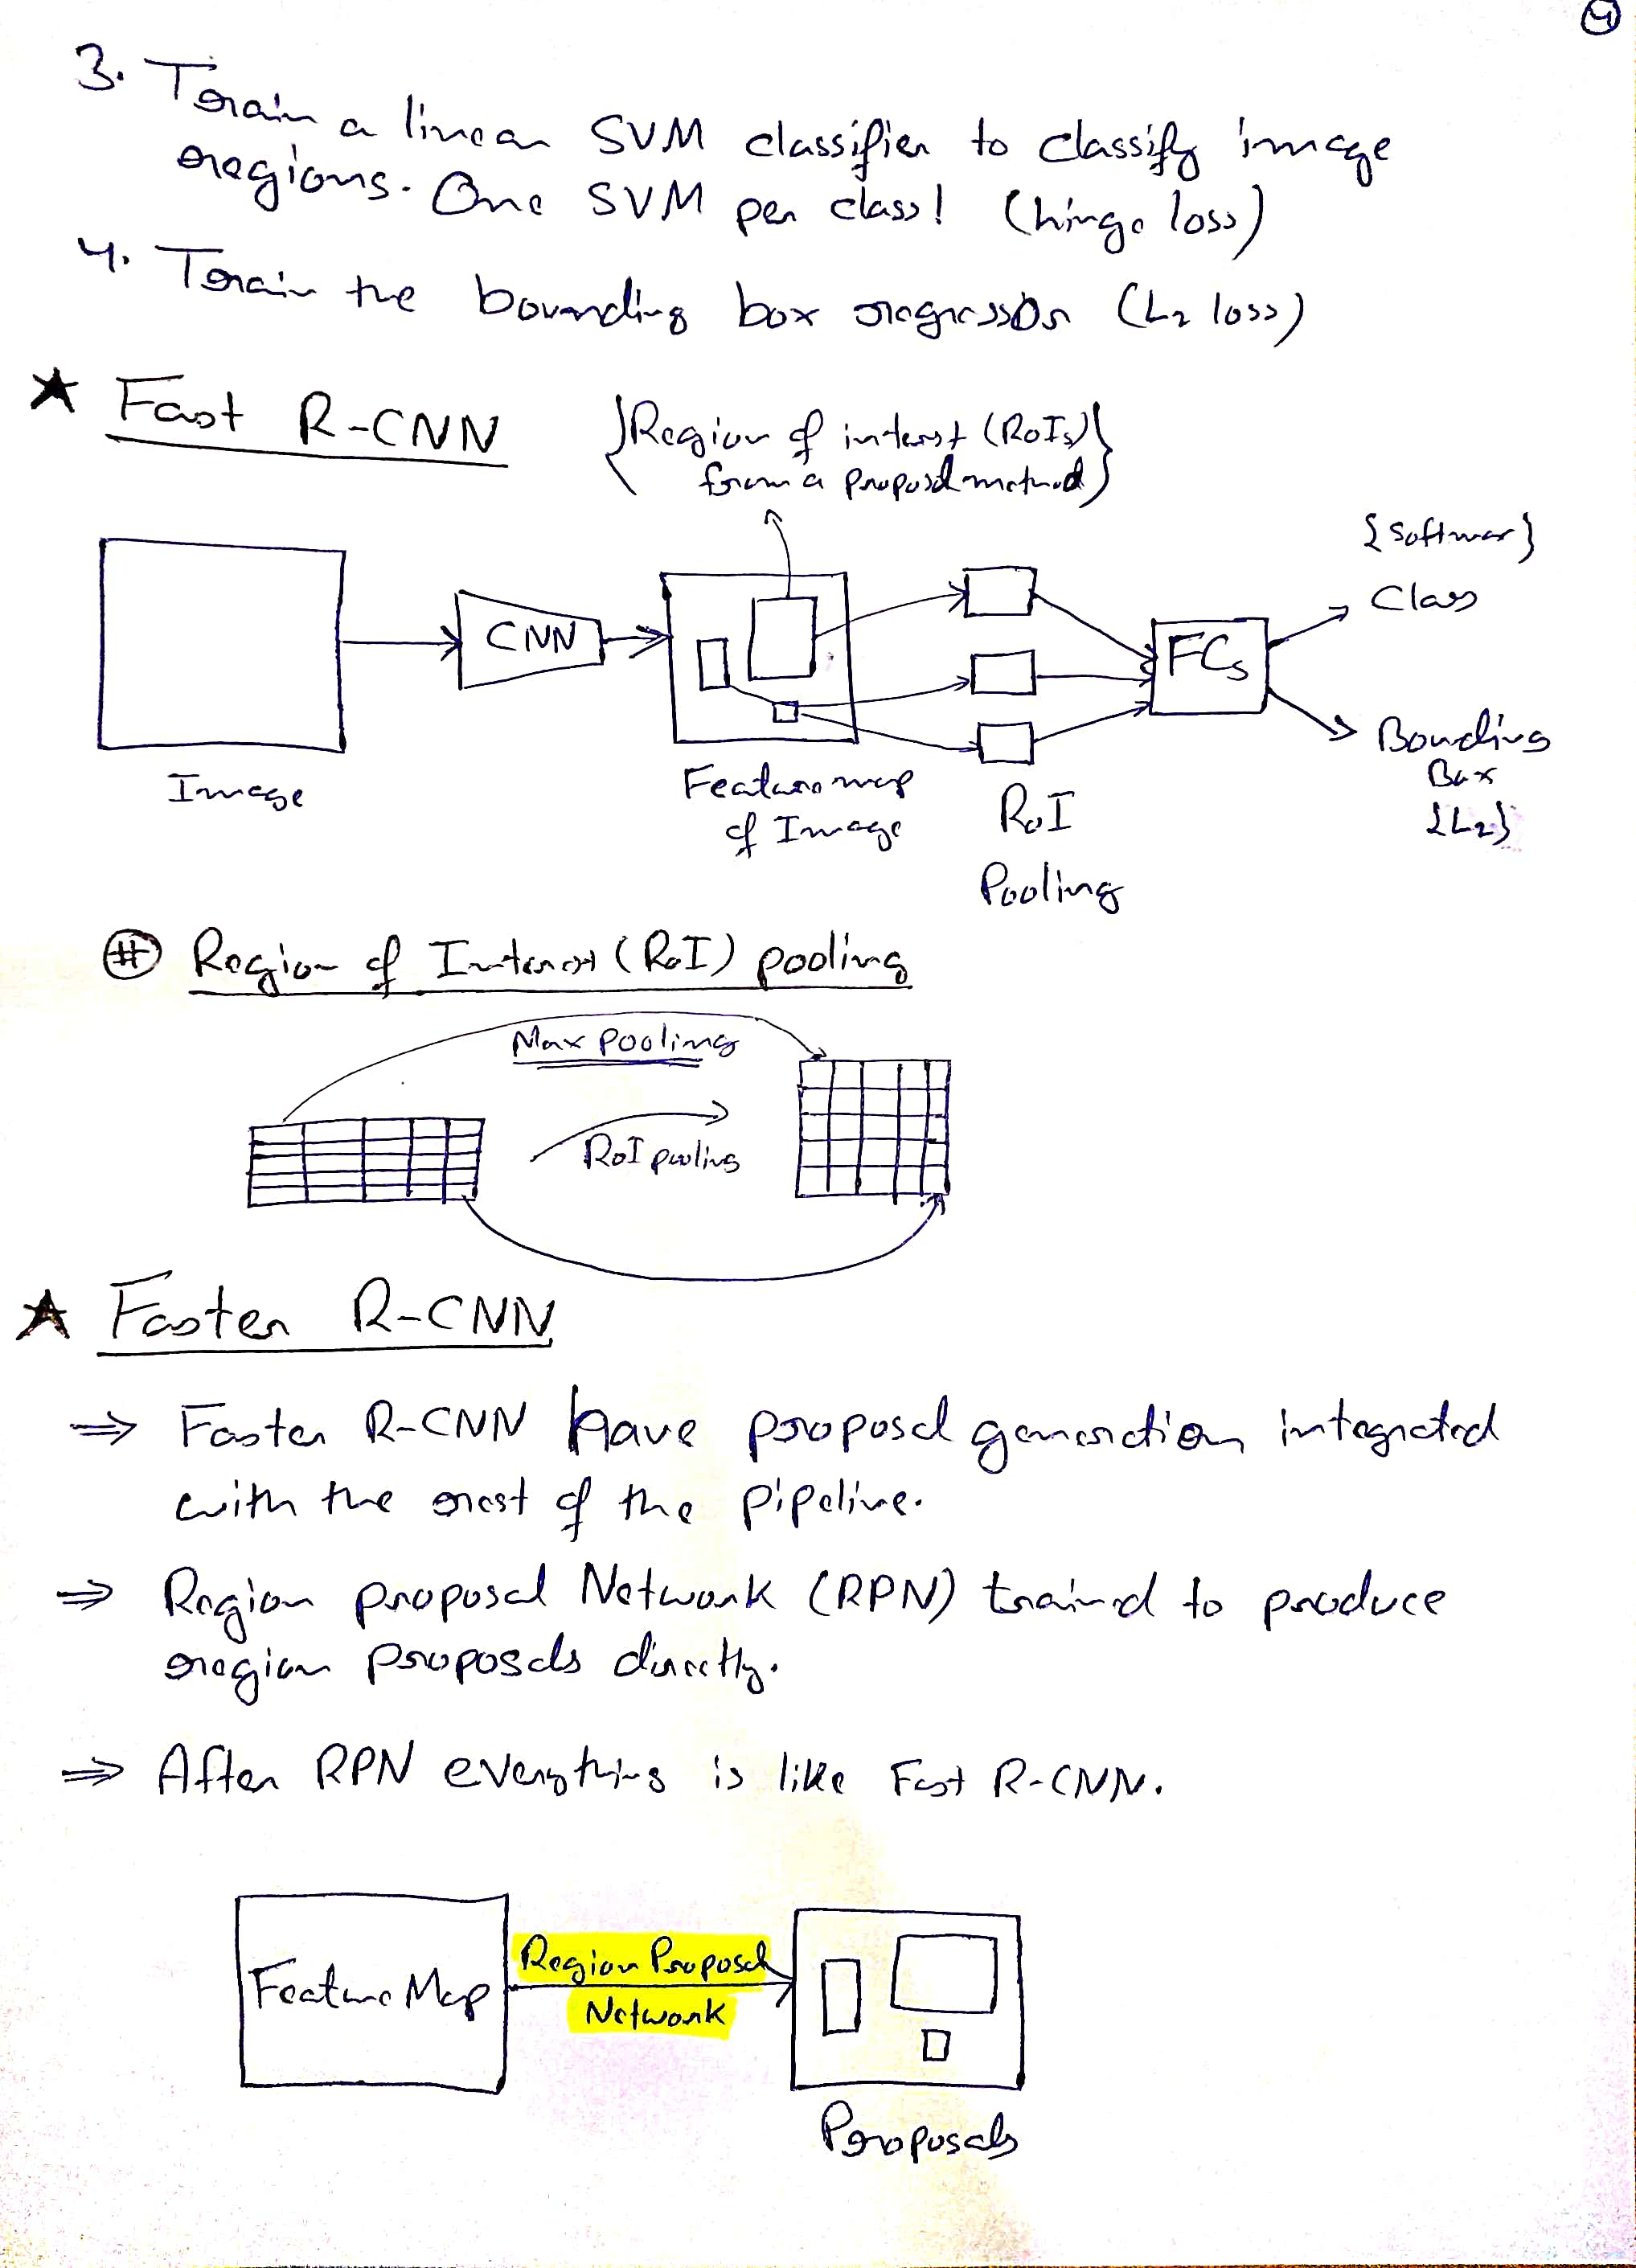 4
3. Train a linear SVM classifier to classify image
regions. One SVM per class! (hinge loss)
4. Train the bounding box regressor (L2 loss)
★ Fast R-CNN
{Region of interest (RoIs)
from a proposal method}
{Softmax}
Class
CNN
FCs
Bounding
Box
{L2}
Image
Feature map
of Image
RoI
Pooling
# Region of Interest (RoI) pooling
Max pooling
RoI pooling
★ Faster R-CNN
⇒ Faster R-CNN have proposal generation integrated
with the rest of the pipeline.
⇒ Region proposal Network (RPN) trained to produce
region proposals directly.
⇒ After RPN everything is like Fast R-CNN.
Feature Map
Region Proposal
Network
Proposals